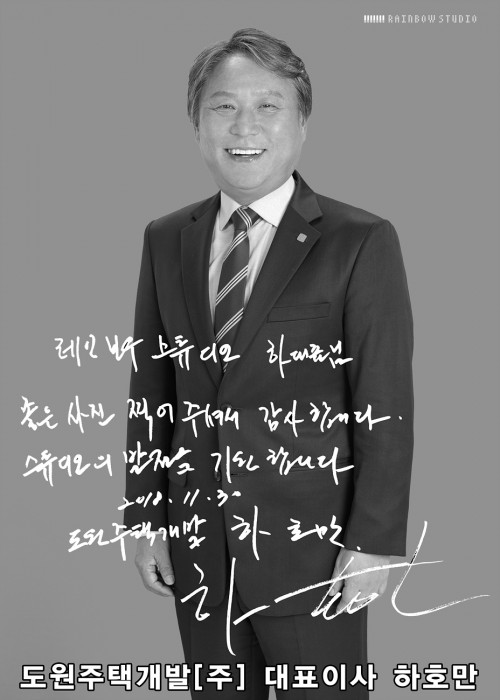 RAINBOW STUDIO
레인보우 스튜디오 하대표님
좋은 사진 찍어 주셔서 감사합니다.
스튜디오의 발전을 기원합니다
2018.11.30
도원주택개발 하호만.
하호만
도원주택개발[주] 대표이사 하호만